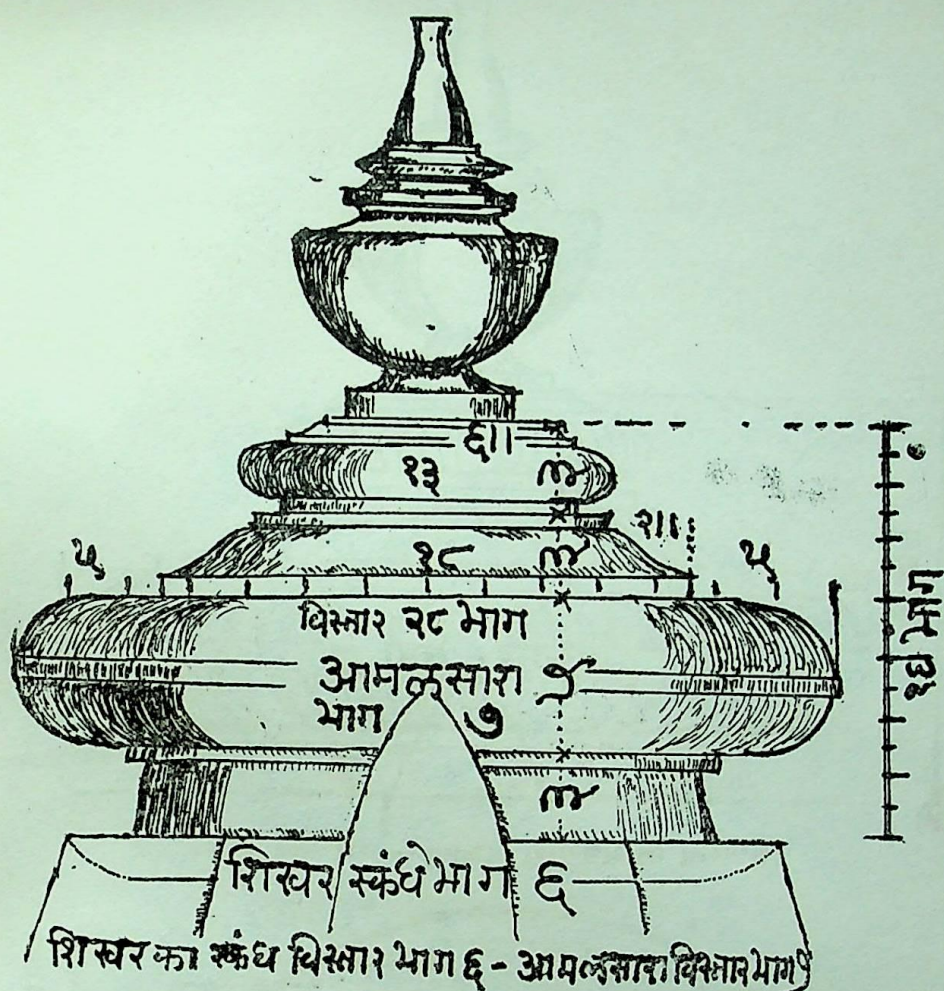 ६।।
१३ ३
२।।
५ १८ ३ ५
विस्तार २८ भाग
आमलसारा
भाग ७
३
१६ भाग
शिखर स्कंधे भाग ६
शिखर का स्कंध विस्तार भाग ६ - आमलसारा विस्तार भाग